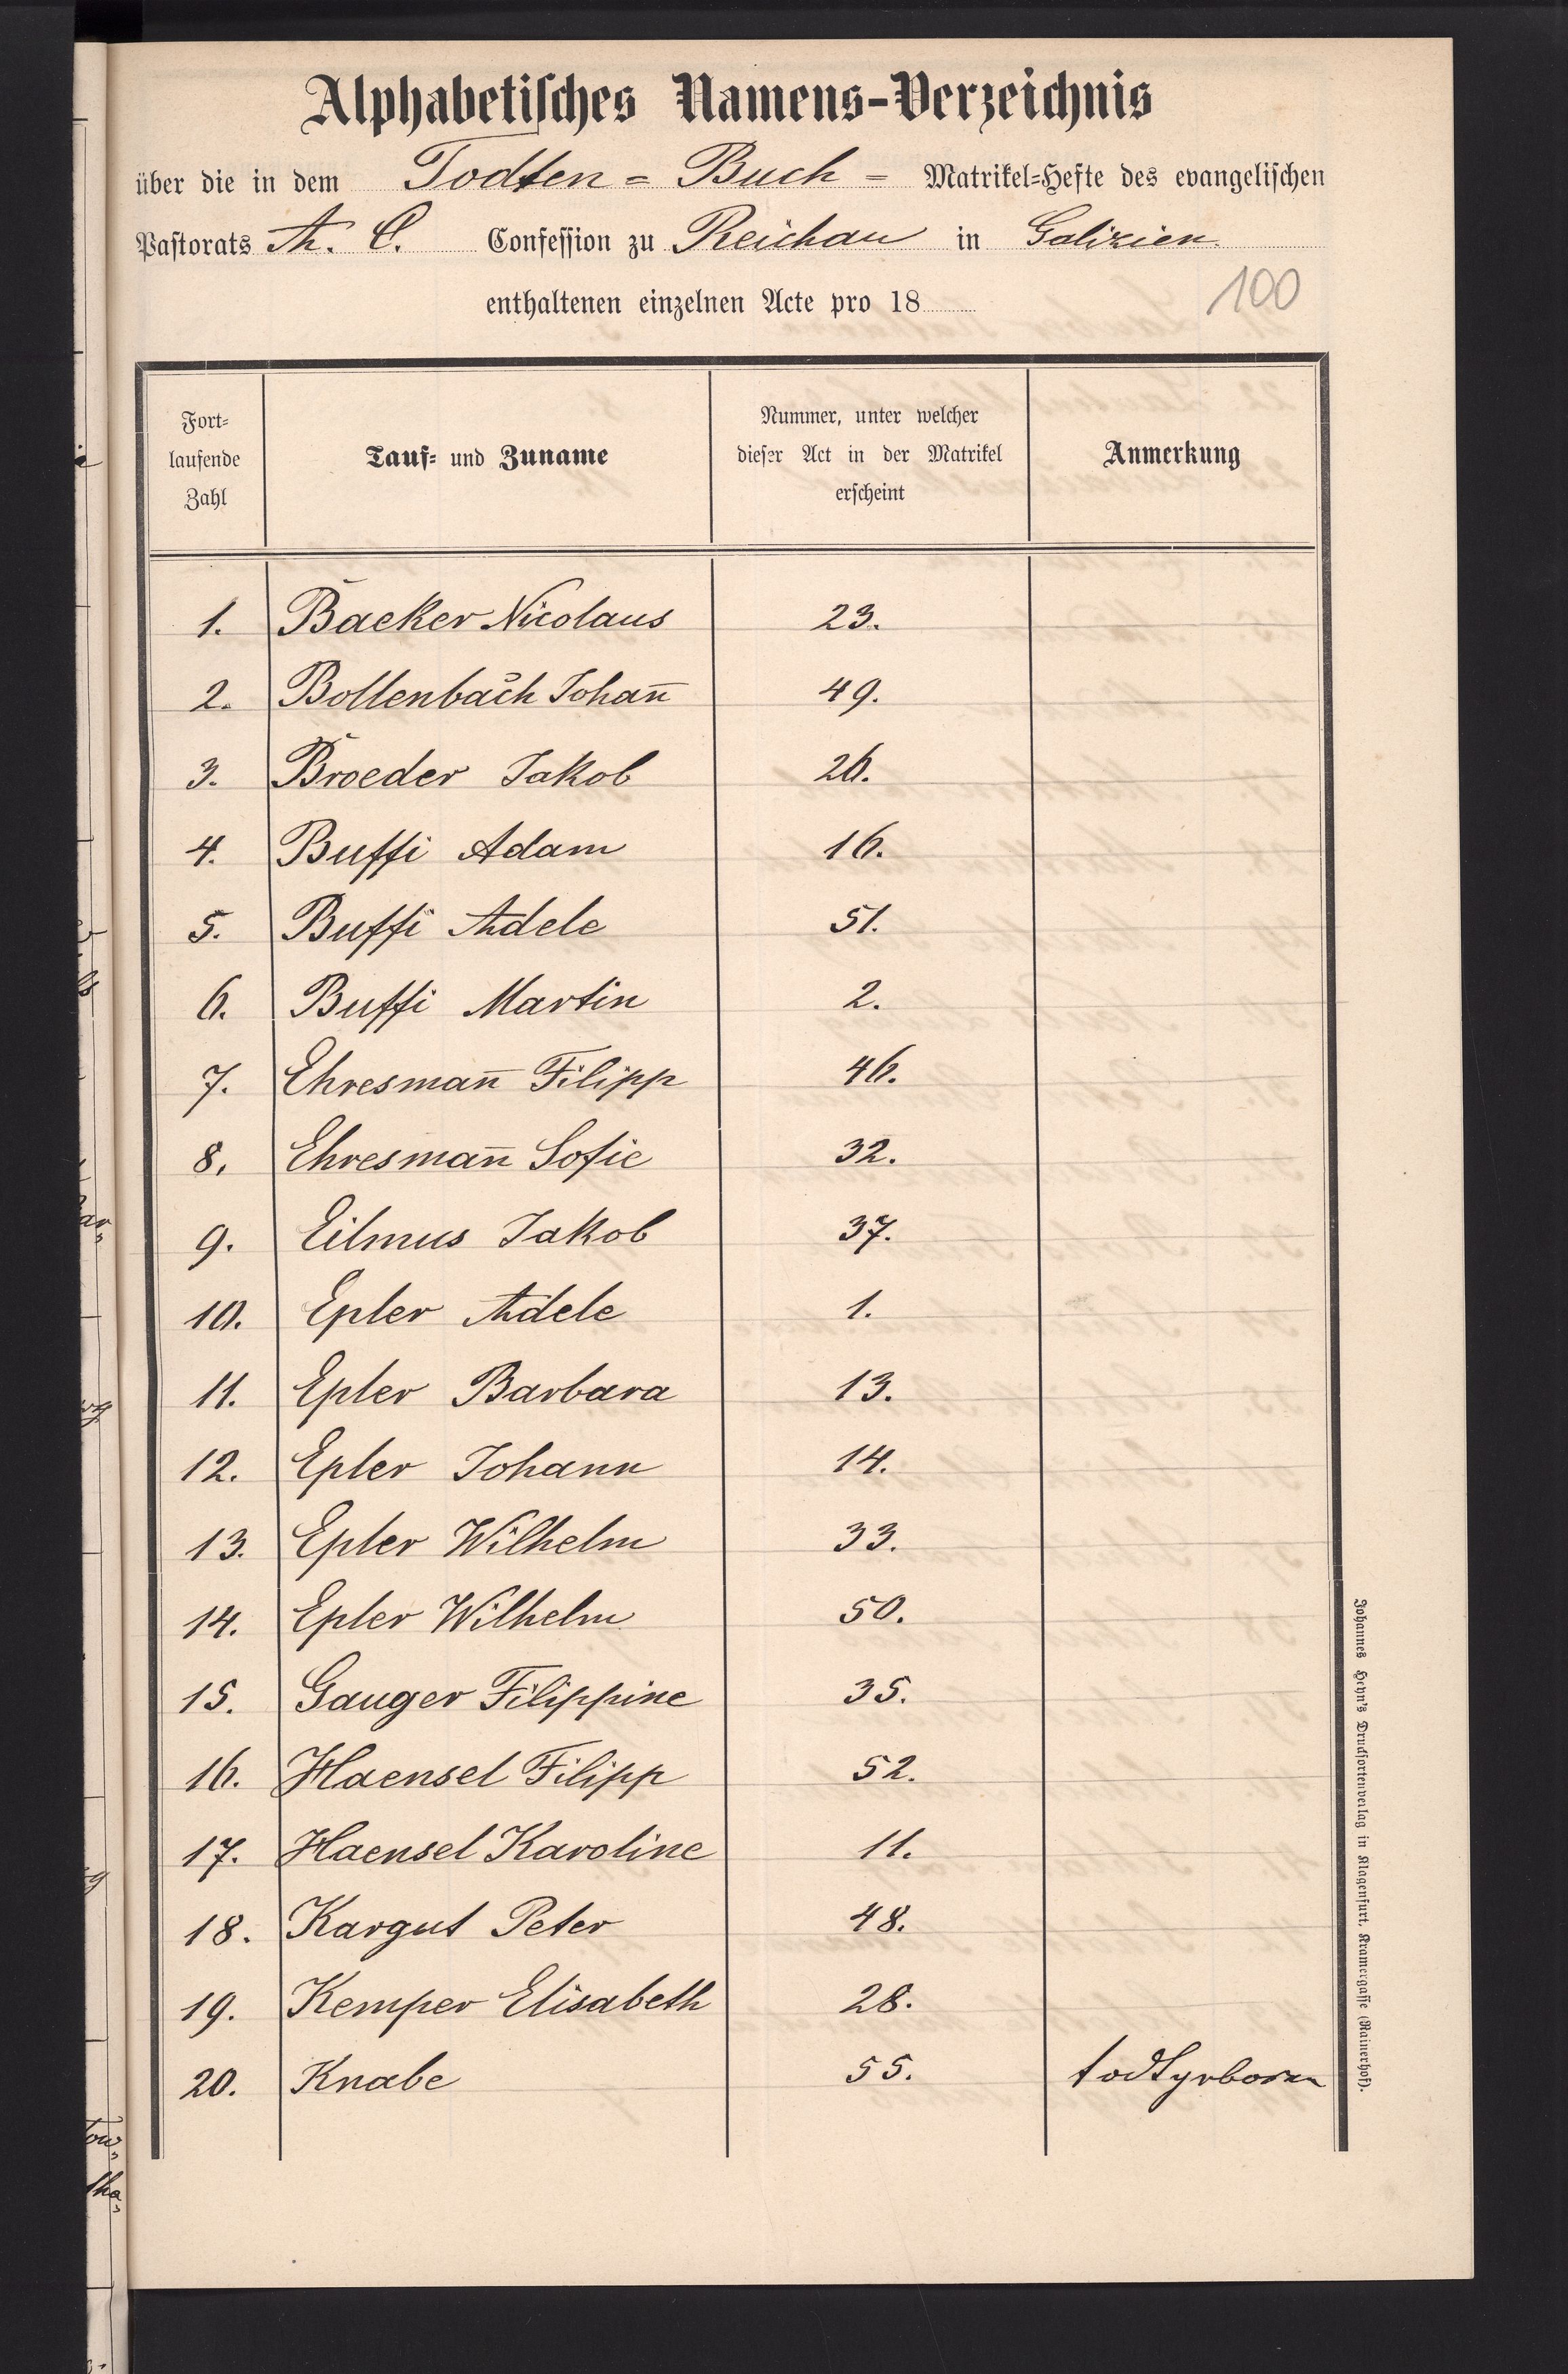 Alphabetisches Namens-Verzeichnis
über die in dem Todten = Buch = Matrikel-Hefte des evangelischen
Pastorats A. C. Confession zu Reichau in Galizien.
enthaltenen einzelnen Acte pro 18
100
Fort-
laufende
Zahl
Tauf- und Zuname
Nummer, unter welcher
dieser Act in der Matrikel
erscheint
Anmerkung
1. Baeker Nicolaus 23.
2. Bollenbach Johan̄ 49.
3. Broeder Jakob 26.
4. Buffi Adam 16.
5. Buffi Adele 51.
6. Buffi Martin 2.
7. Ehresman̄ Filipp 46.
8. Ehresman̄ Sofie 32.
9. Eilmus Jakob 37.
10. Epler Adele 1.
11. Epler Barbara 13.
12. Epler Johann 14.
13. Epler Wilhelm 33.
14. Epler Wilhelm 50.
15. Gauger Filippine 35.
16. Haensel Filipp 52.
17. Haensel Karoline 11.
18. Kargut Peter 48.
19. Kemper Elisabeth 28.
20. Knabe 55. todtgeboren
Johannes Heyn's Drucksortenverlag in Klagenfurt, Kramergasse (Rainerhof).